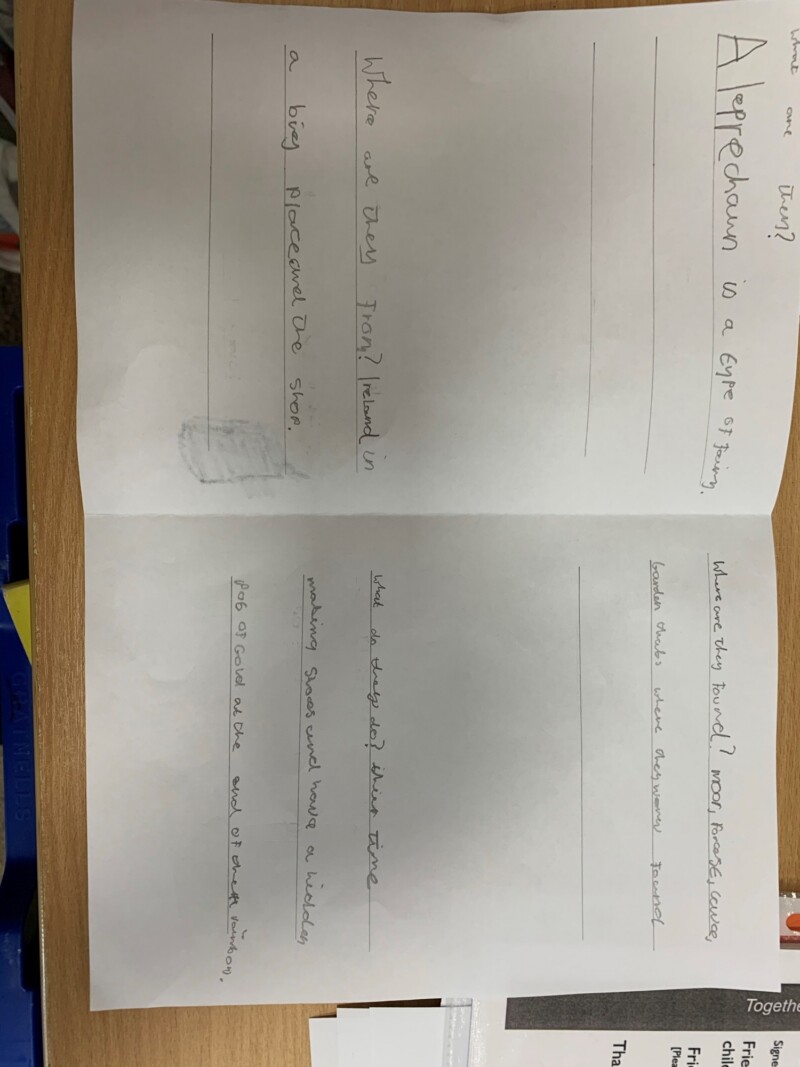 What are they?
A leprechaun is a type of fairy.
Where are they from? Ireland in
a big place and the shop.
Where are they found? moor, forese, cave,
Garden thats where they wore found
What do they do?
time
making shoes and have a hidden
pot of Gold at the end of the rainbow.
GRATNELLS
Togethe
Signe
Frie
chil
Fri
[Plea
Tha